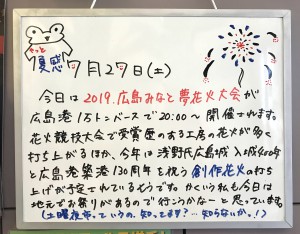 そっと
優感 7月27日(土)
今日は2019.広島みなと夢花火大会が
広島港1万トンバースで20:00〜開催されます。
花火競技大会で受賞歴のある工房の花火が多く
打ち上がるほか、今年は浅野氏広島城入城400年
と広島港築港130周年を祝う創作花火の打ち
上げが予定されているそうです。かくいう私も今日は
地元でお祭りがあるので行こうかなーと思っています。
(土曜夜市っていうの、知ってます?…知らないか。!)